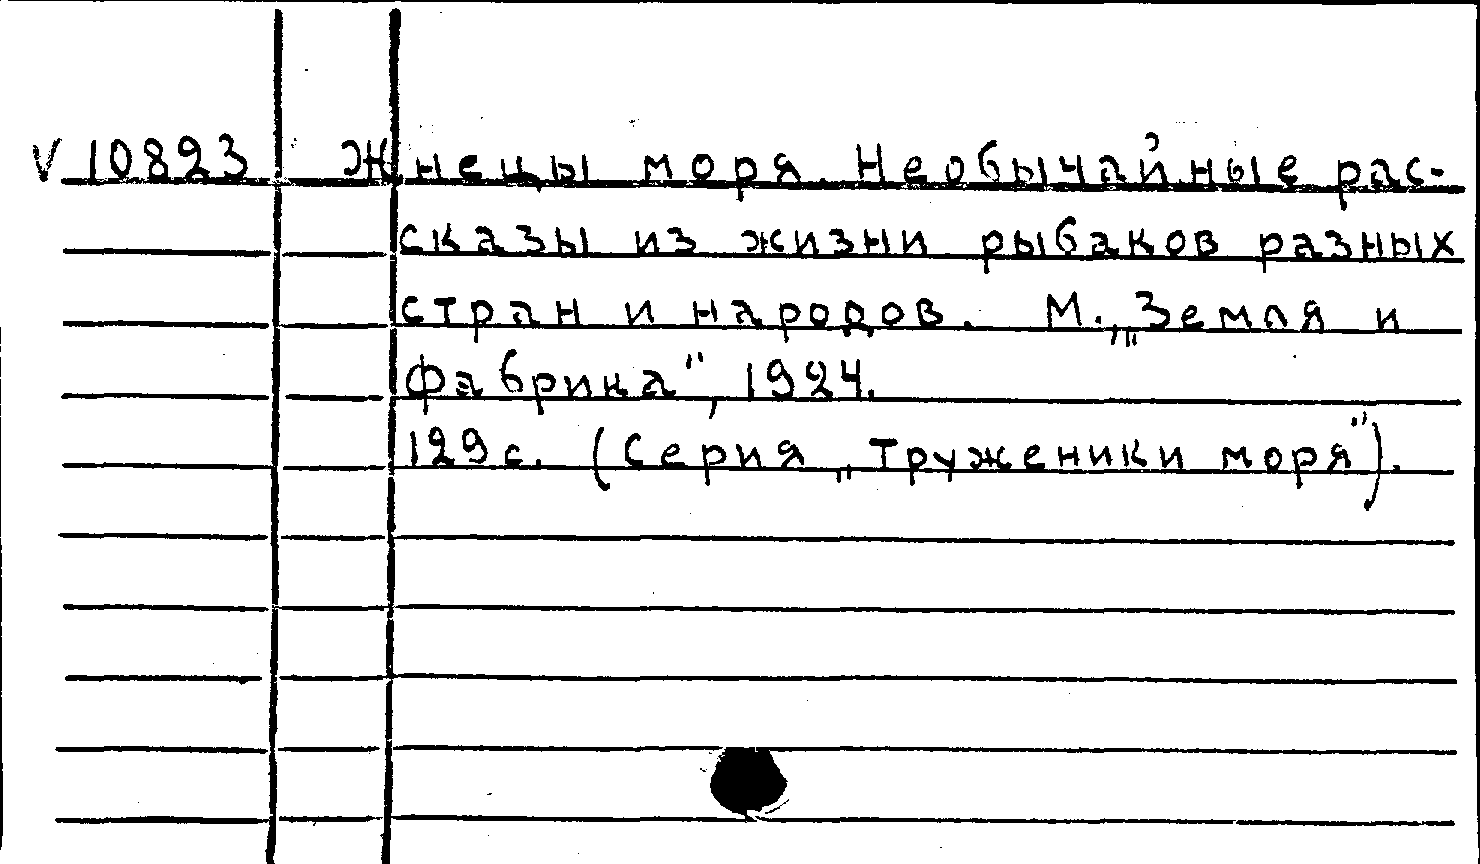 V 10823 Жнецы моря. Необычайные рас-
сказы из жизни рыбаков разных
стран и народов. М., „Земля и
фабрика", 1924.
129 с. (Серия „Труженики моря").